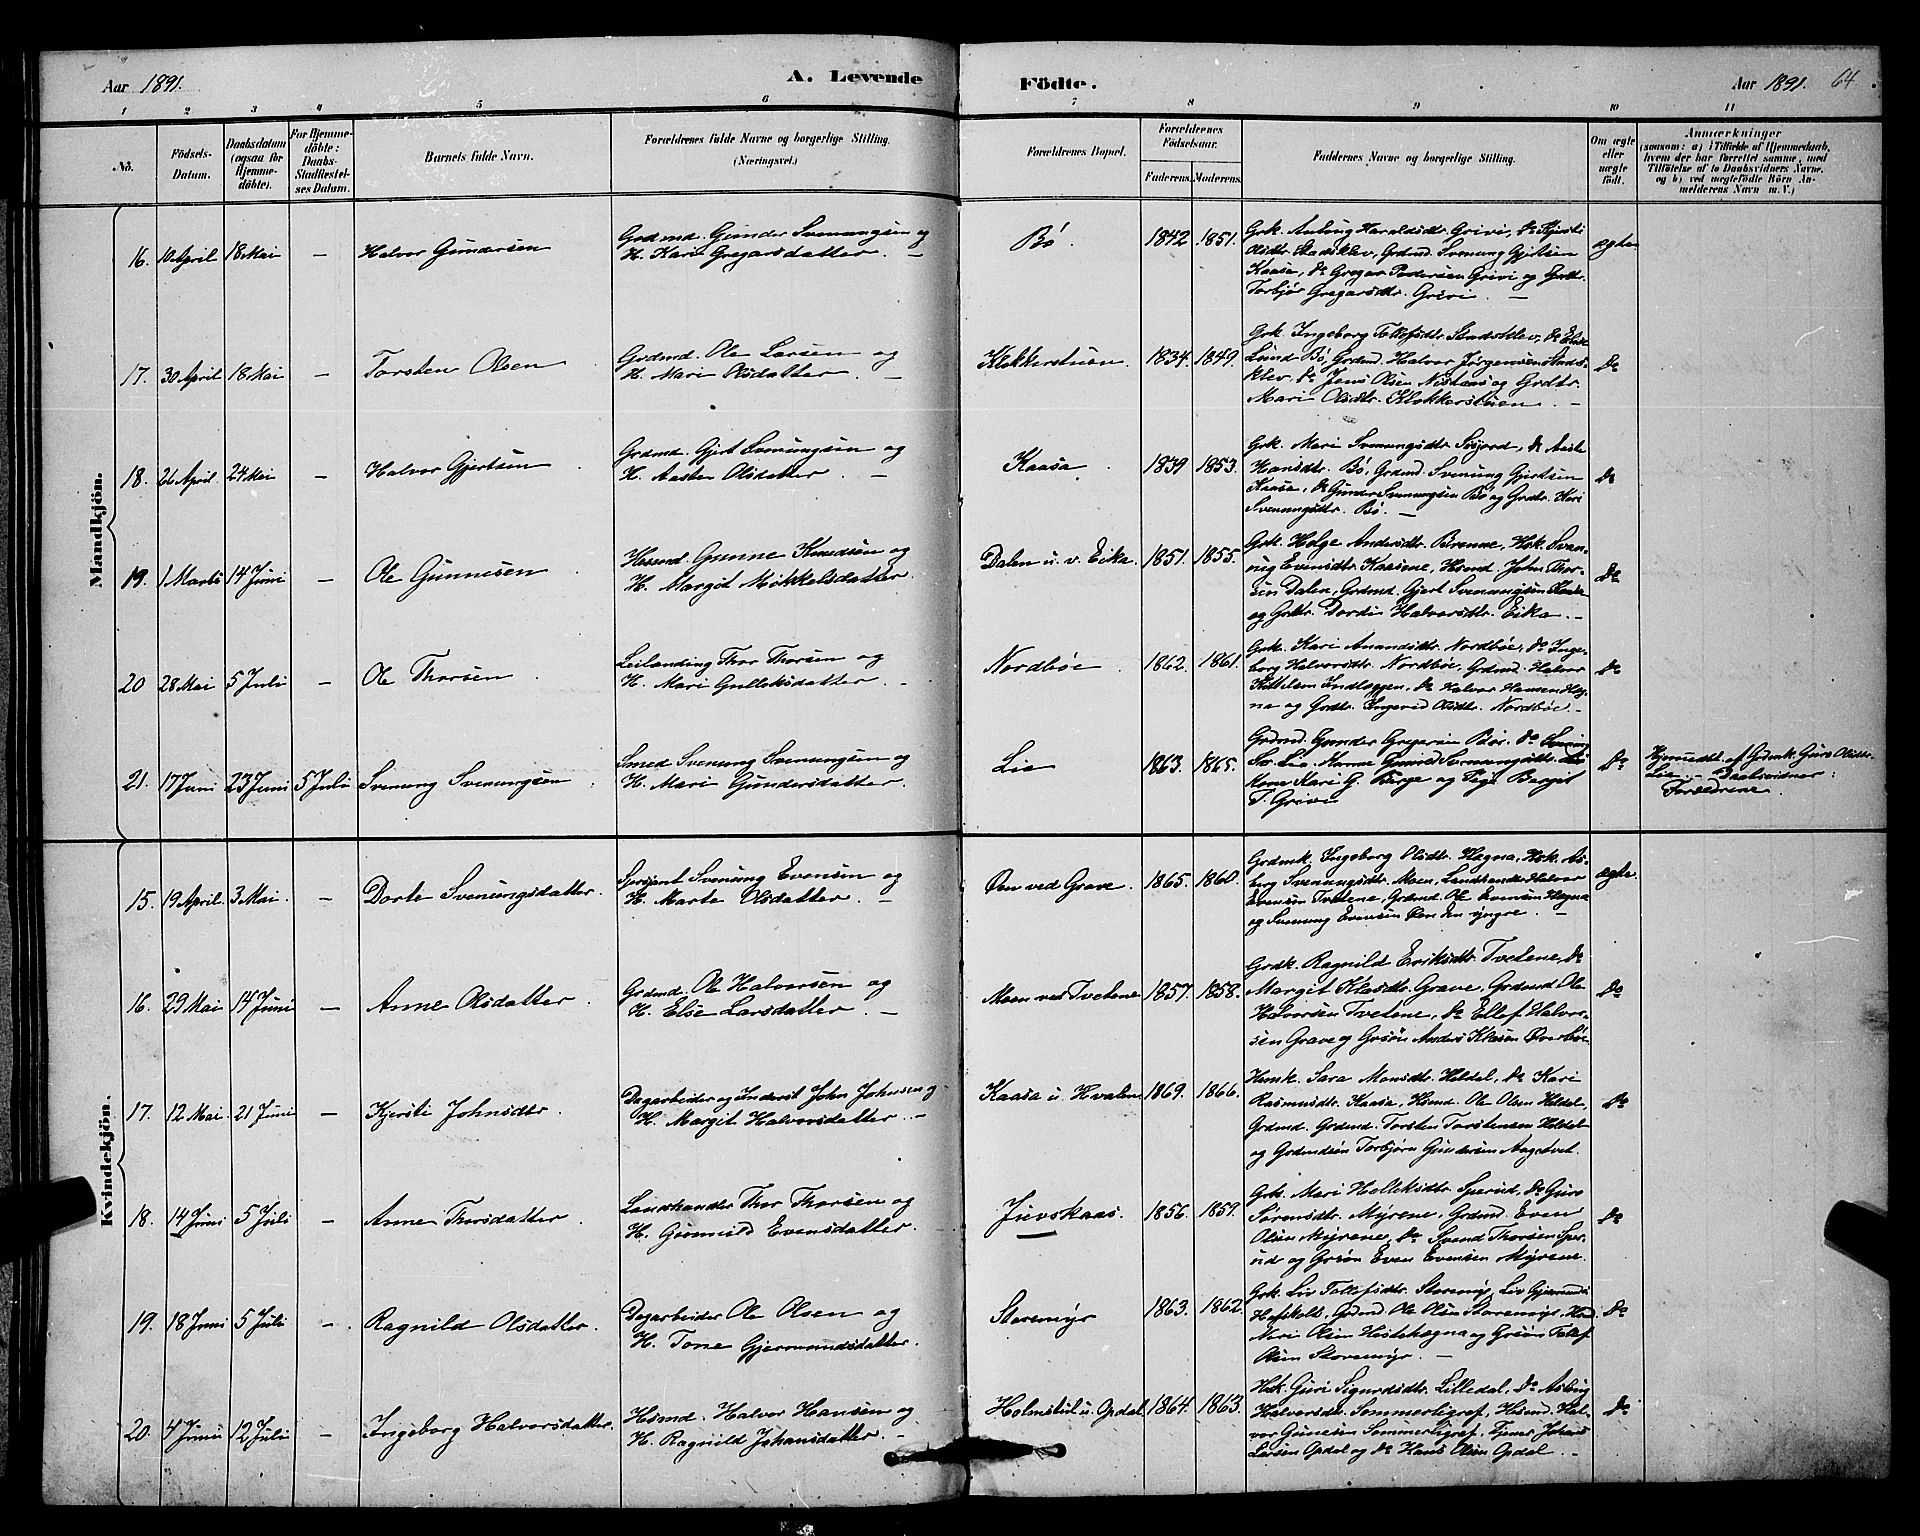 Aar 1891.
A. Levende
Födte.
Aar 1891. 64
1 2 3 4 5 6 7 8 9 10 11
No.
Födsels-
Datum.
Daabsdatum
(ogsaa for
Hjemme-
döbte).
For Hjemme-
döbte:
Daabs-
Stadfæstel-
ses Datum.
Barnets fulde Navn.
Forældrenes fulde Navne og borgerlige Stilling.
(Næringsvei.)
Forældrenes Bopæl.
Forældrenes
Födselsaar.
Faderens. Moderens.
Faddernes Navne og borgerlige Stilling.
Om ægte
eller
uægte
födt.
Anmærkninger
(saasom: a) i Tilfælde af Hjemmedaab,
hvem der har forrettet samme, med
Tilföielse af to Daabsvidners Navne,
og b) ved uægtefödte Börn An-
melderens Navn m. V.)
Mandkjön.
16. 10 April 18 Mai — Halvor Gundersen
Grdmd. Gunder Svenungsen og
H. Kari Gregarsdatter. —
Bö. 1842 1851.
Grk. Anlaug Haraldsdtr. Grivi, do Kjersti
Olsdtr. Stadsklev, Grdmd. Svenung Gjertsen
Kaasa, do Gregar Pedersen Grivi og Grdtr.
Torbjør Gregarsdtr. Grivi. —
ægte
17. 30 April 18 Mai — Torsten Olsen
Grdmd. Ole Larsen og
H. Mari Olsdatter. —
Klokkerstuen. 1834. 1849.
Grk. Ingeborg Tollefsdtr. Stadsklev, do Else
Lund Bö, Grdmd. Halvor Jörgensen Stads-
klev, do Jens Olsen Nistaas og Grdtr.
Mari Olsdtr. Klokkerstuen. —
do
18. 26 April 24 Mai — Halvor Gjertsen
Grdmd. Gjert Svenungsen og
H. Aaste Olsdatter. —
Kaasa. 1839 1853.
Grk. Mari Svenungsdtr. Sisjord, do Aaste
Hansdtr. Bö, Grdmd. Svenung Gjertsen
Kaasa, do Gunder Svenungsen Bö og Grdtr. Kari
Svenungsdtr. Bö. —
do
19. 1 Marts 14 Juni — Ole Gunnesen
Husmd. Gunne Knudsen og
H. Margit Mikkelsdatter.
Dalen u. v. Eika. 1851. 1855.
Grk. Helge Andersdtr. Brenne, Hsk. Svan-
aug Evensdtr. Kaasene, Hsmd. John Thor-
sen Dalen, Grdmd. Gjert Svenungsen Kaasa
og Grdtr. Dordi Halvorsdtr. Eika. —
do
20 28 Mai 5 Juli — Ole Thorsen
Leilænding Thor Thorsen og
H. Mari Gulleksdatter. —
Nordböe. 1862. 1861.
Grk. Kari Amundsdtr. Nordböe, do Inge-
borg Halvorsdtr. Nordböe, Grdmd. Halvor
Kittelsen Indlæggen, do Halvor Hansen Heg-
na og Grdtr. Ingerid Olsdtr. Nordböe. —
do
21. 17 Juni 23 Juni 5 Juli Svenung Svenungsen
Smed Svenung Svenungsen og
H. Mari Gundersdatter.
Lie 1863. 1865.
Grdmd. Gunder Gregarsen Bör. do Svenung
Sv. Lie, Kone Gunild Svenungsdtr. Lie
Kone Kari G. Börge og Pige Bergit
T. Grivi
do
Hjemmedt. af Grdmk. Guro Olsdtr.
Lie. — Daabsvidner:
Forældrene.
Kvindekjön.
15. 19 April 3 Mai. — Dorte Svenungsdatter.
Sersjent Svenung Evensen og
H. Marte Olsdatter. —
Öen ved Grave. 1865. 1860.
Grdmk. Ingeborg Olsdtr. Hægna, Hsk. As-
borg Svenungsdtr. Moen, Landhandler Halvor
Evensen Tvetene, Grdmd. Ole Evensen Hægna
og Svenung Evensen Öen den yngre. —
ægte.
16. 29 Mai 14 Juni — Anne Olsdatter.
Grdmd. Ole Halvorsen og
H. Else Larsdatter. —
Moen ved Tvetene 1857. 1858.
Grdk. Ragnild Eriksdtr. Tvetene, do
Margit Klasdtr. Grave, Grdmd. Ole
Halvorsen Tvetene, do Ellef Halvor-
sen Grave og Grsön Anders Klasen Överböe.
do
17. 12 Mai 21 Juni — Kjersti Johnsdtr.
Dagarbeider og Inderst John Johnsen og
H. Margit Halvorsdatter. —
Kaasa u. Hvalen 1869. 1866.
Hsmk. Sara Monsdtr. Heldal, do Kari
Rasmusdtr. Kaasa, Hsmd. Ole Olsen Heldal,
Grdmd. Grdmd. Torsten Torstensen Heldal
og Grdmdsön Torbjörn Gundersen Aagetvet.
do
18. 14 Juni 5 Juli — Anne Thorsdatter.
Landhandler Thor Thorsen og
H. Gunnild Evensdatter.
Juvskaas. 1856. 1859.
Grk. Mari Helleksdtr. Sperud, do Guro
Sörensdtr. Myrene, Grdmd. Even
Olsen Myrene, do Svend Thorsen Sper-
ud og Grsön Even Evensen Myrene.
do
19. 18 Juni 5 Juli — Ragnild Olsdatter.
Dagarbeider Ole Olsen og
H. Tone Gjermundsdatter.
Storemyr 1863. 1862.
Grk. Liv Tollefsdtr. Storemyr, Liv Gjermunds
Grdmd. Ole Olsen Storemyr,
Olsen Hestehægna og Grsön Tollef
Olsen Storemyr. —
do
20. 4 Juni 12 Juli — Ingeborg Halvorsdatter.
Hsmd. Halvor Hansen og
H. Ragnild Johansdatter. —
Holmstul u. Opdal 1864. 1863.
Hsk. Guri Sigurdsdtr. Lilledal, do Aslaug
Halvorsdtr. Sommerligref, Hsmd. Hal-
vor Gunesen Sommerligref, Tjener Johans
Larsen Opdal og do Hans Olsen Opdal. —
do